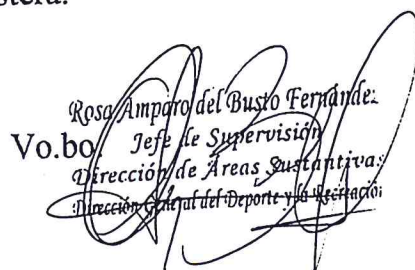 Rosa Amparo del Busto Fernández
Vo.bo Jefe de Supervisión
Dirección de Áreas Sustantivas
Dirección General del Deporte y la Recreación